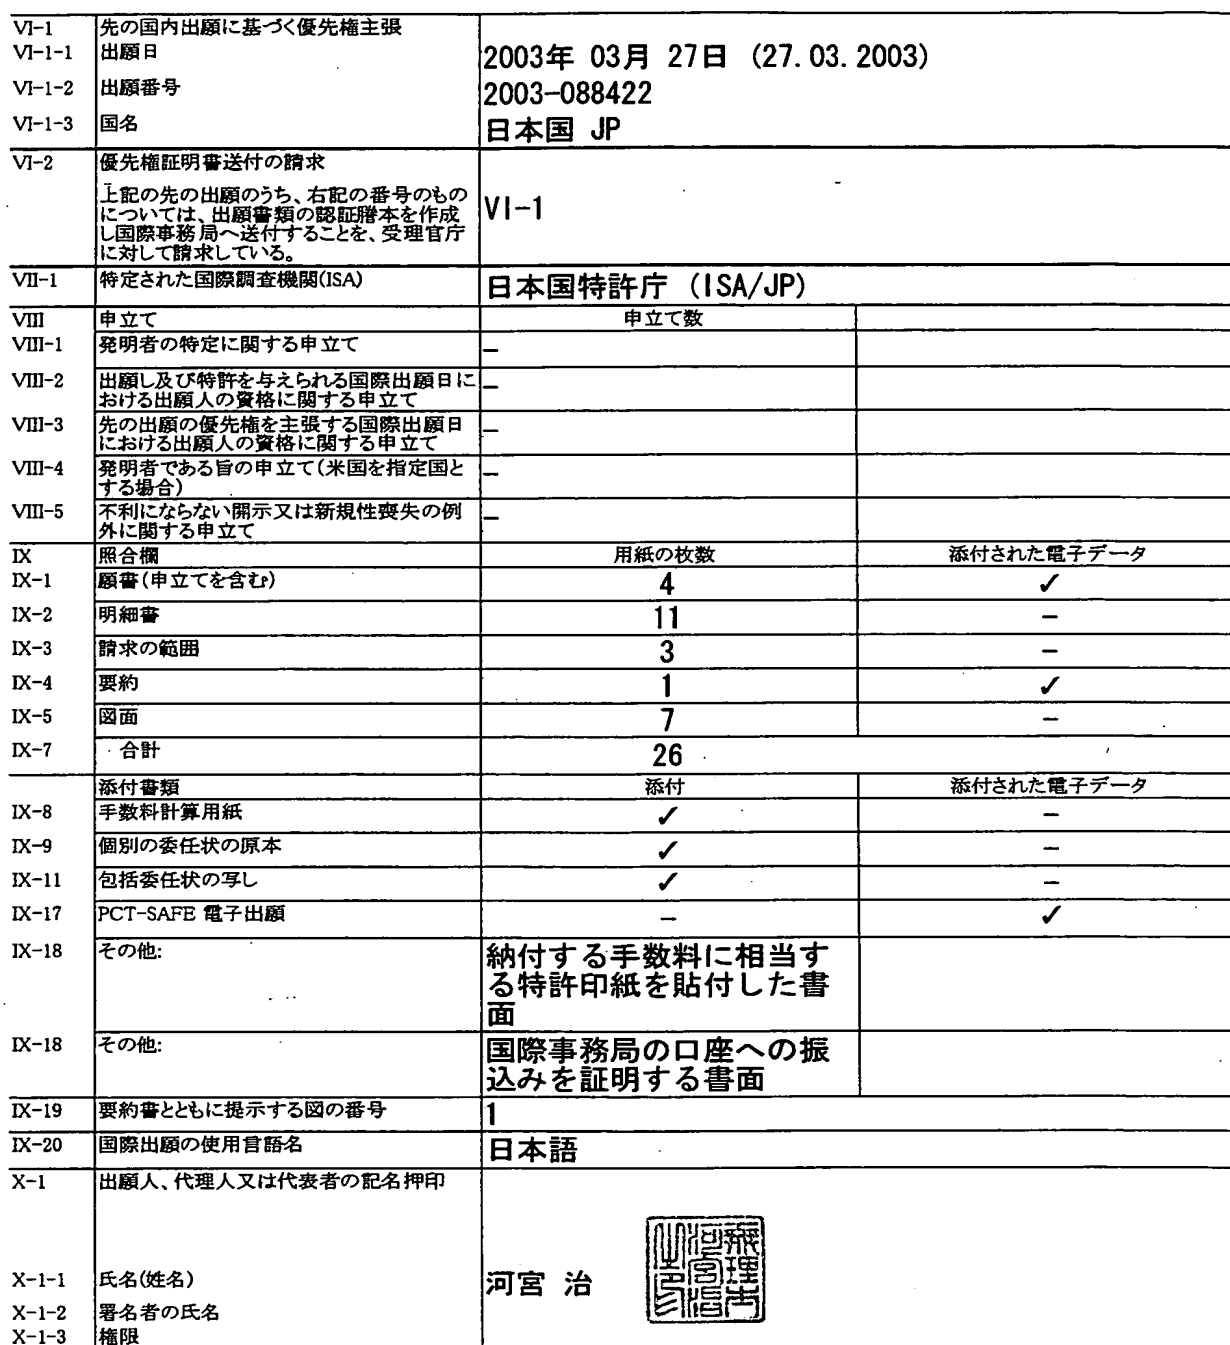 VI-1 先の国内出願に基づく優先権主張
VI-1-1 出願日 2003年 03月 27日 (27.03.2003)
VI-1-2 出願番号 2003-088422
VI-1-3 国名 日本国 JP
VI-2 優先権証明書送付の請求
上記の先の出願のうち、右記の番号のもの
については、出願書類の認証謄本を作成 VI-1
し国際事務局へ送付することを、受理官庁
に対して請求している。
VII-1 特定された国際調査機関(ISA) 日本国特許庁 (ISA/JP)
VIII 申立て 申立て数
VIII-1 発明者の特定に関する申立て –
VIII-2 出願し及び特許を与えられる国際出願日に –
おける出願人の資格に関する申立て
VIII-3 先の出願の優先権を主張する国際出願日 –
における出願人の資格に関する申立て
VIII-4 発明者である旨の申立て(米国を指定国と –
する場合)
VIII-5 不利にならない開示又は新規性喪失の例 –
外に関する申立て
IX 照合欄 用紙の枚数 添付された電子データ
IX-1 願書(申立てを含む) 4 ✓
IX-2 明細書 11 –
IX-3 請求の範囲 3 –
IX-4 要約 1 ✓
IX-5 図面 7 –
IX-7 合計 26
添付書類 添付 添付された電子データ
IX-8 手数料計算用紙 ✓ –
IX-9 個別の委任状の原本 ✓ –
IX-11 包括委任状の写し ✓ –
IX-17 PCT-SAFE 電子出願 – ✓
IX-18 その他: 納付する手数料に相当す
る特許印紙を貼付した書
面
IX-18 その他: 国際事務局の口座への振
込みを証明する書面
IX-19 要約書とともに提示する図の番号 1
IX-20 国際出願の使用言語名 日本語
X-1 出願人、代理人又は代表者の記名押印
X-1-1 氏名(姓名) 河宮 治
X-1-2 署名者の氏名
X-1-3 権限